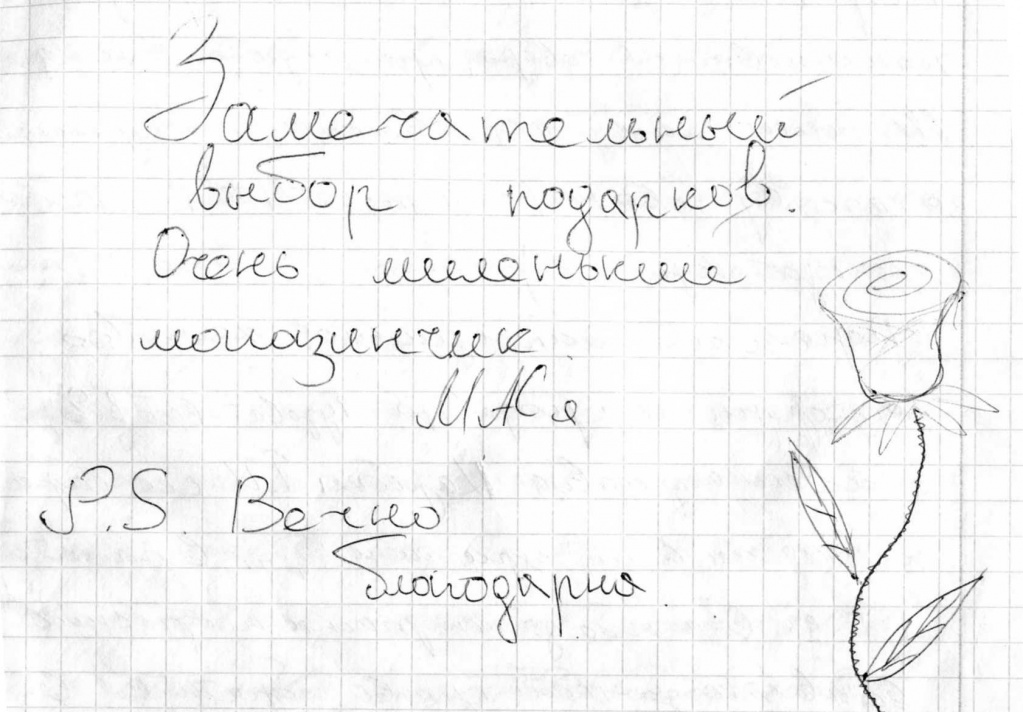 Замечательный
выбор подарков.
Очень миленький
магазинчик.
P.S. Вечно
благодарна.